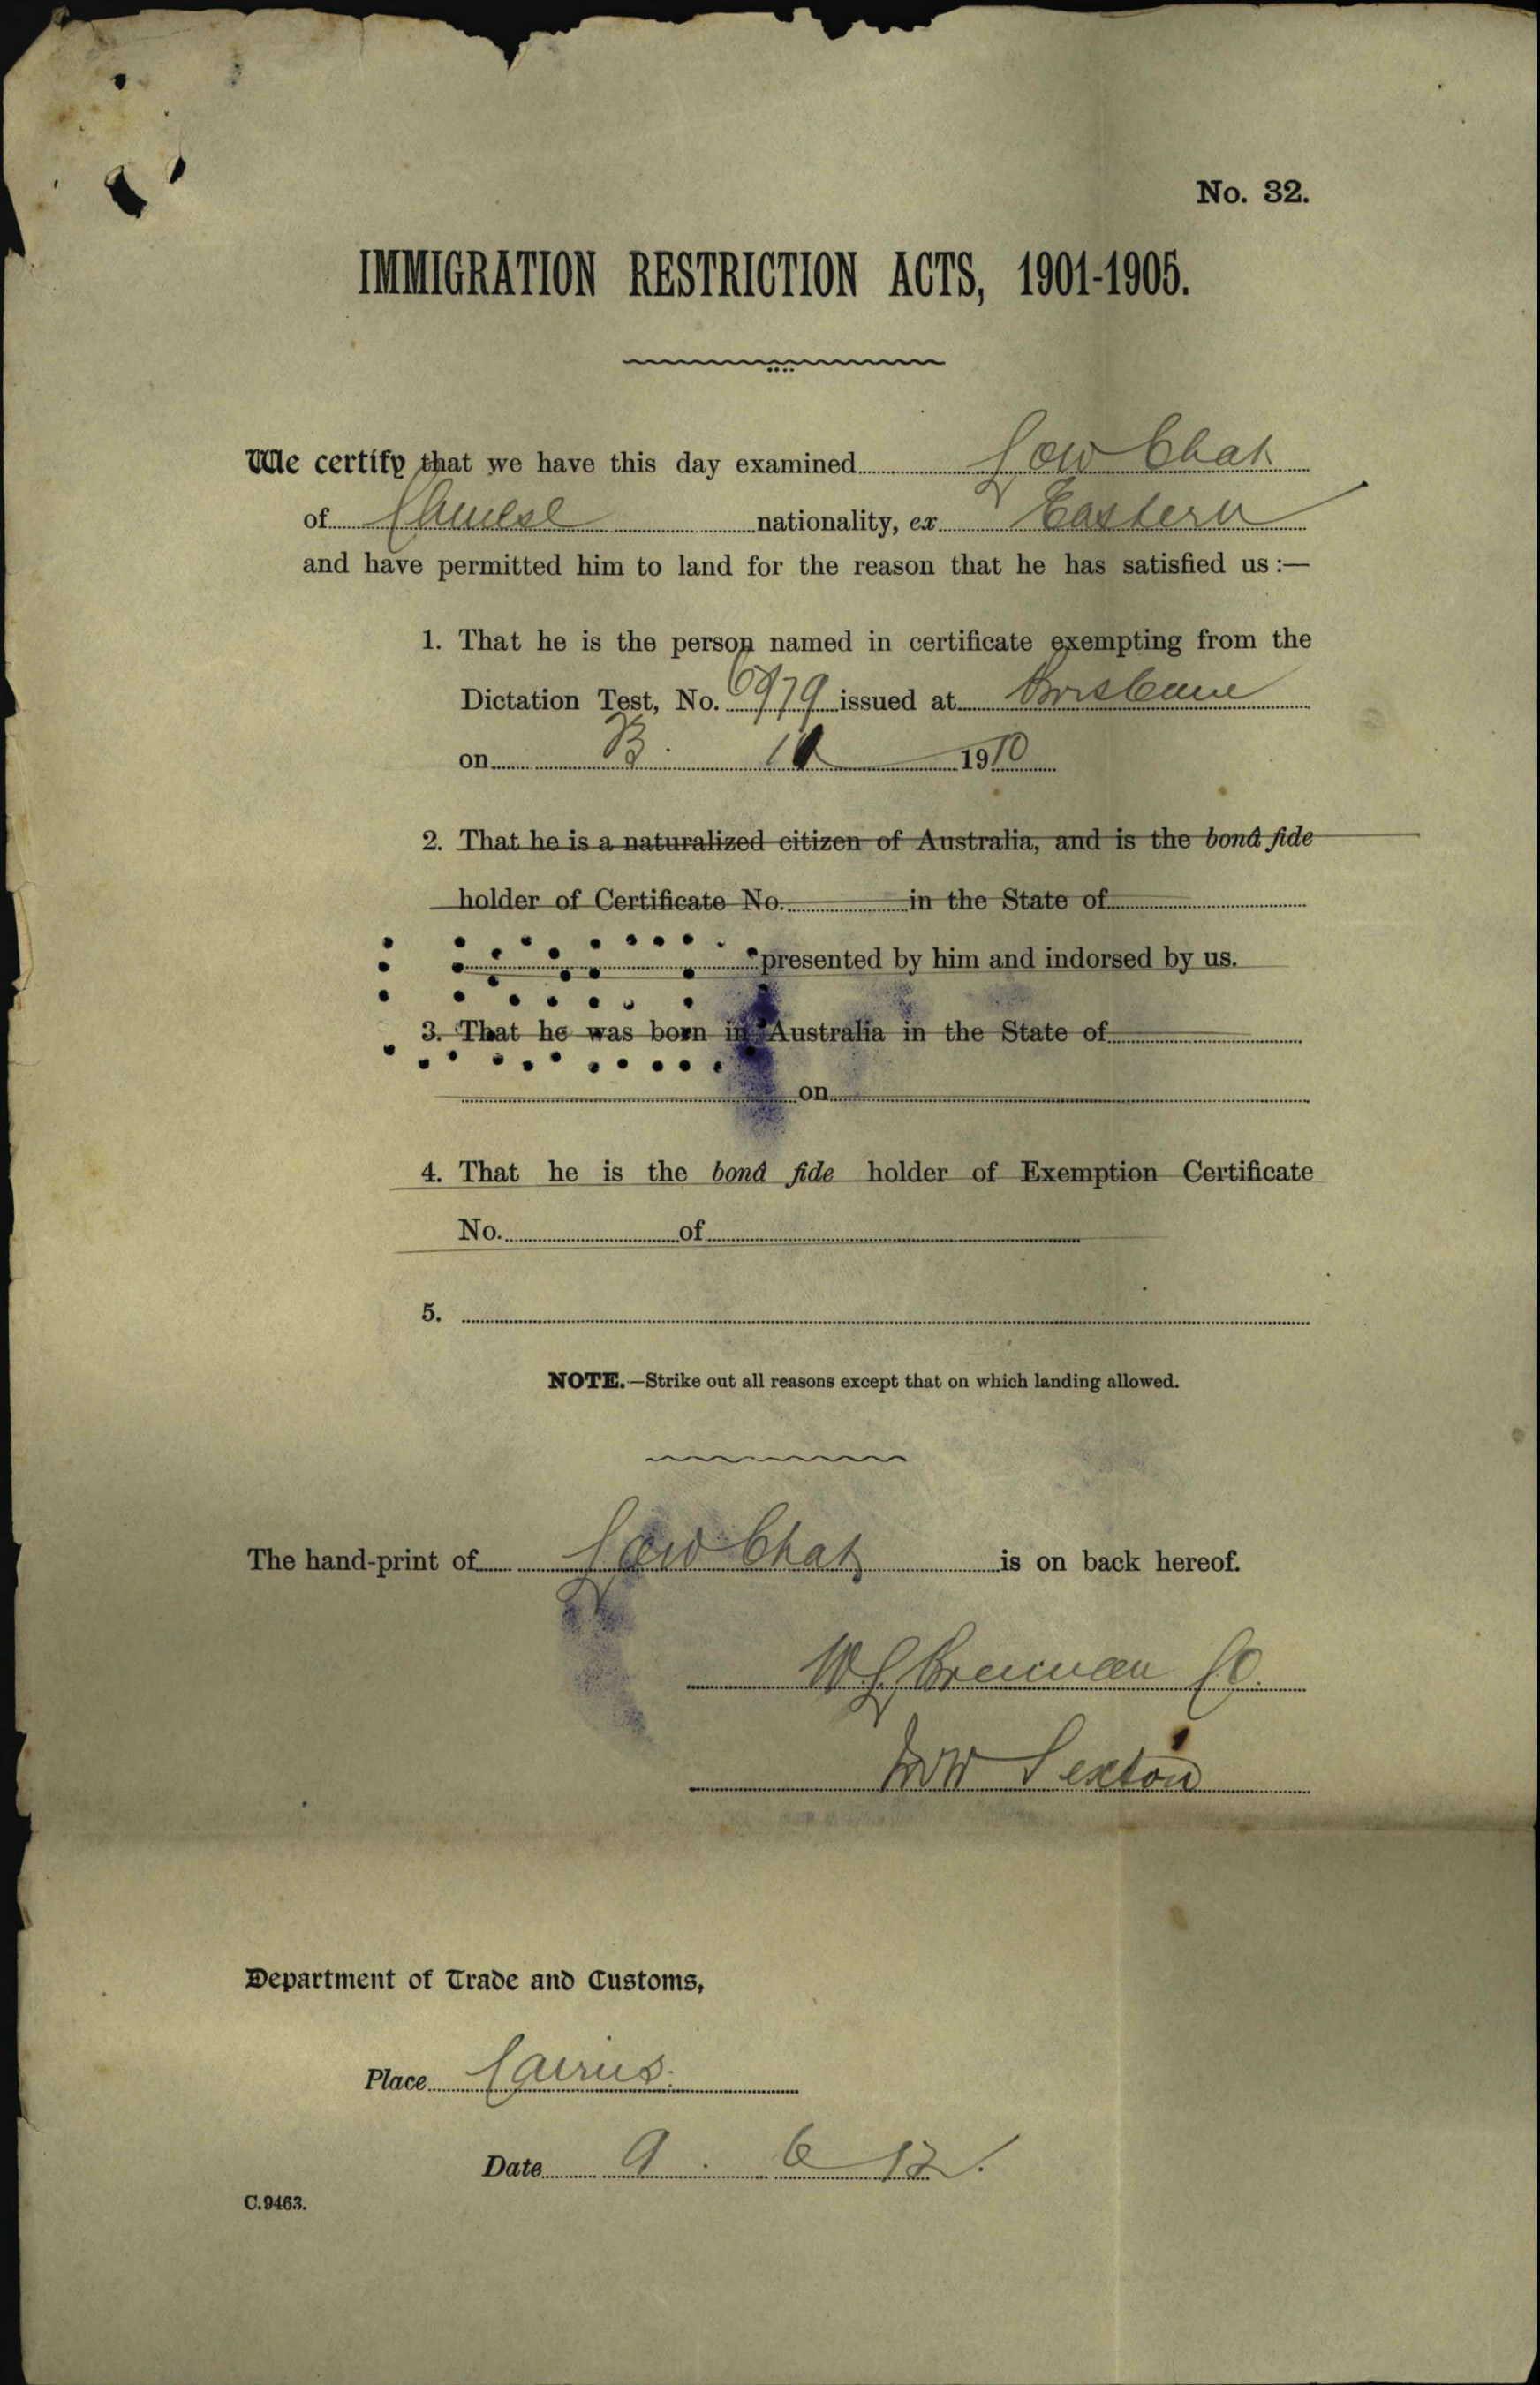 No. 32.
IMMIGRATION RESTRICTION ACTS, 1901-1905.
We certify that we have this day examined Low Chat
of Chinese nationality, ex Eastern
and have permitted him to land for the reason that he has satisfied us :—
1. That he is the person named in certificate exempting from the
Dictation Test, No. issued at Brisbane
on 1910
2. That he is a naturalized citizen of Australia, and is the bonâ fide
holder of Certificate No. in the State of
presented by him and indorsed by us.
3. That he was born in Australia in the State of
on
4. That he is the bonâ fide holder of Exemption Certificate
No. of
5.
NOTE.—Strike out all reasons except that on which landing allowed.
The hand-print of Low Chat is on back hereof.
W L Brennan CO.
Sexton
Department of Trade and Customs,
Place Cairns.
Date 9. 6 12.
C.9463.